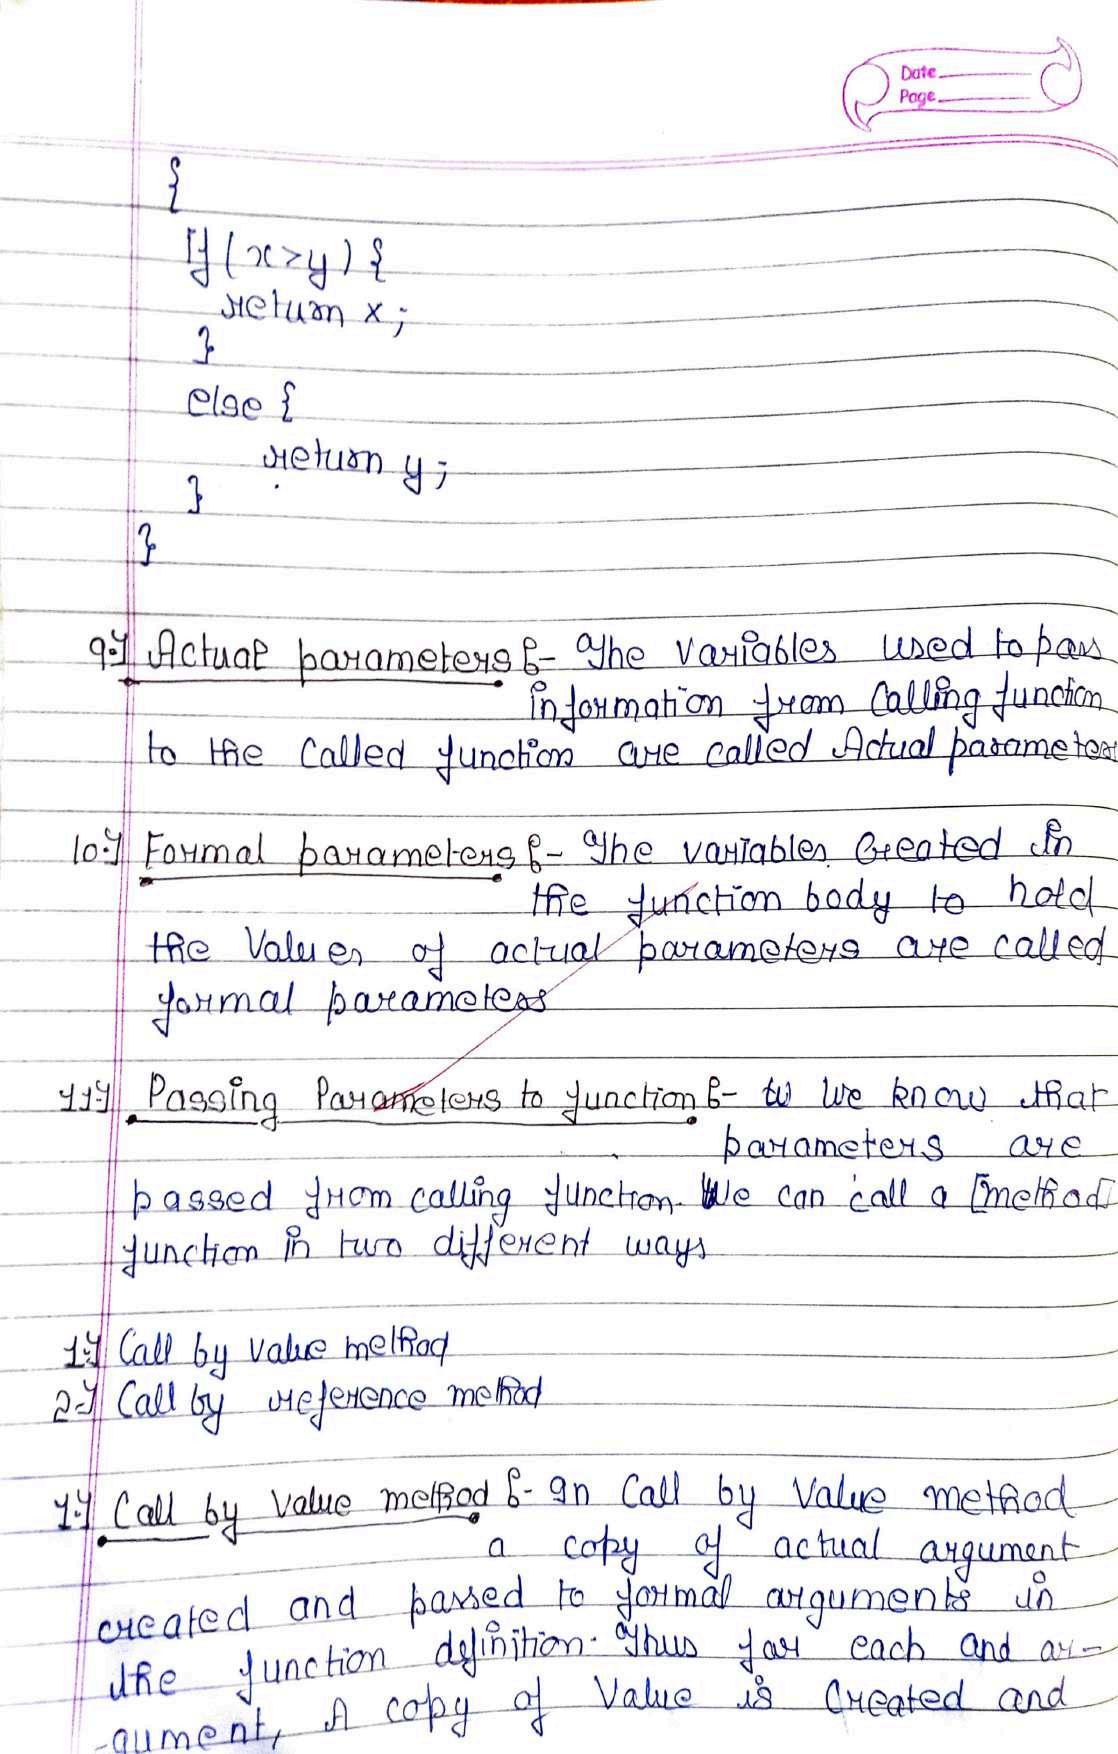 Date
Page
{
If (x>y) {
return x;
}
else {
return y;
}
}
9.) Actual parameters :- The variables used to pass
information from calling function
to the called function are called Actual parameters
10.) Formal parameters :- The variables created in
the function body to hold
the values of actual parameters are called
formal parameters
11.) Passing Parameters to function :- We know that
parameters are
passed from calling function. We can call a [method]
function in two different ways
1.) Call by value method
2.) Call by reference method
1.) Call by value method :- In Call by Value method
a copy of actual argument
created and passed to formal arguments in
the function definition. Thus for each and ar-
-gument, A copy of Value is Created and